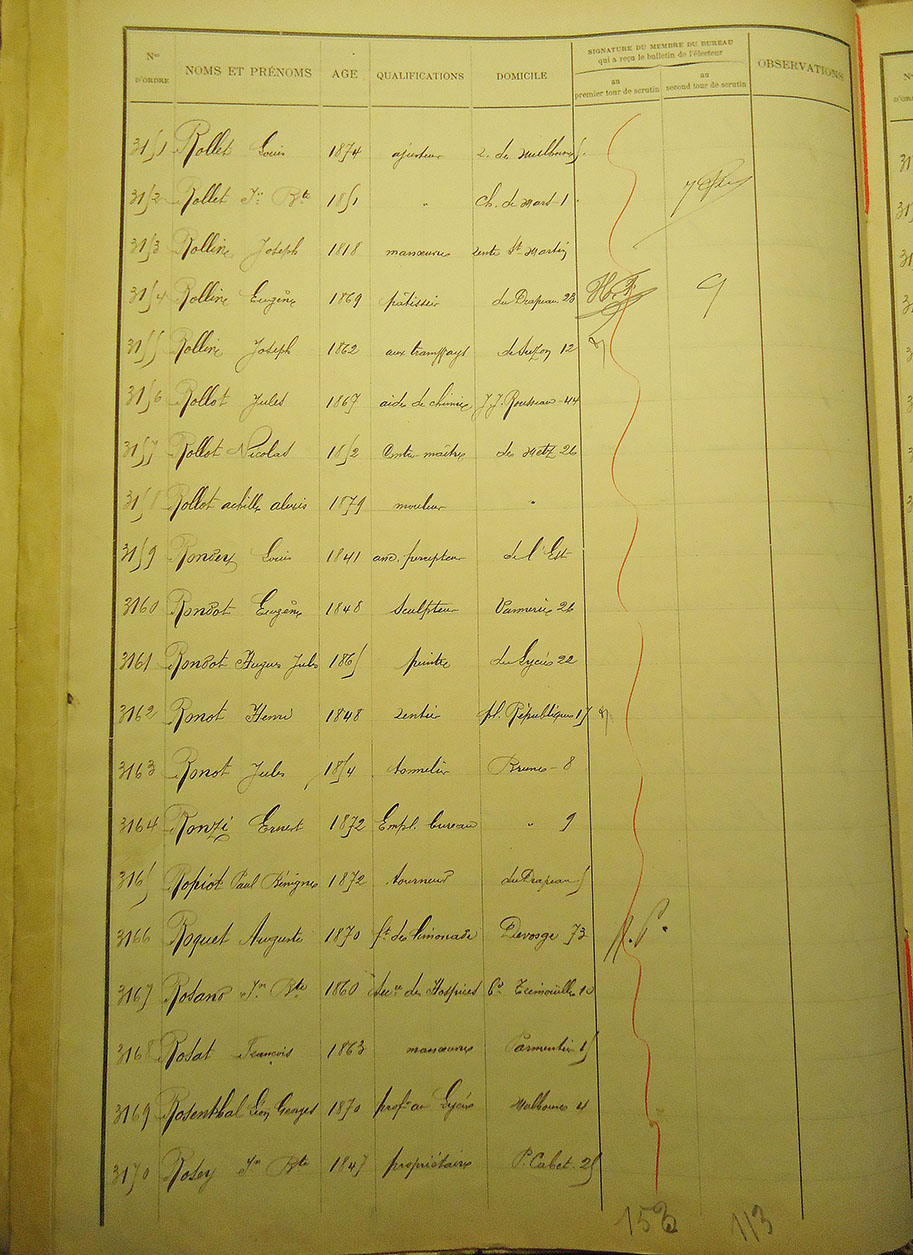 Nos D'ORDRE NOMS ET PRÉNOMS AGE QUALIFICATIONS DOMICILE SIGNATURE DU MEMBRE DU BUREAU qui a reçu le bulletin de l'électeur OBSERVATIONS
au premier tour de scrutin au second tour de scrutin
3151 Rollet Louis 1874 ajusteur 5.
3152 Rollet Jn Bte 1851 " Ch. de Mars 1
3153 Rollin Joseph 1818 manœuvre St Martin
3154 Rollin Eugène 1869 pâtissier du Drapeau 23 9
3155 Rollin Joseph 1862 aux tramways de Suzon 12
3156 Rollot Jules 1867 aide de chimie J.J. Rousseau 44
3157 Rollot Nicolas 1852 Contre maître de Metz 26
3158 Rollot achille alexis 1879 mouleur "
3159 Louis 1841 anc. percepteur de l'Est
3160 Rondot Eugène 1848 sculpteur Vannerie 26
3161 Rondot Hugues Jules 1865 peintre du Lycée 22
3162 Ronot Henri 1848 rentier pl. République 15
3163 Ronot Jules 1854 tonnelier 8
3164 Ronzi Ernest 1872 Empl. bureau " 9
3165 Ropiot Paul Bénigne 1872 tourneur du Drapeau 5
3166 Roquet Auguste 1870 ft de limonade Devosge 73
3167 Jn Bte 1860 des Hospices 10
3168 Rosat François 1863 manœuvre Parmentier 15
3169 Rosenthal Léon Georges 1870 profr au Lycée 4
3170 Rosey Jn Bte 1847 propriétaire P. Cabet 25
153 113